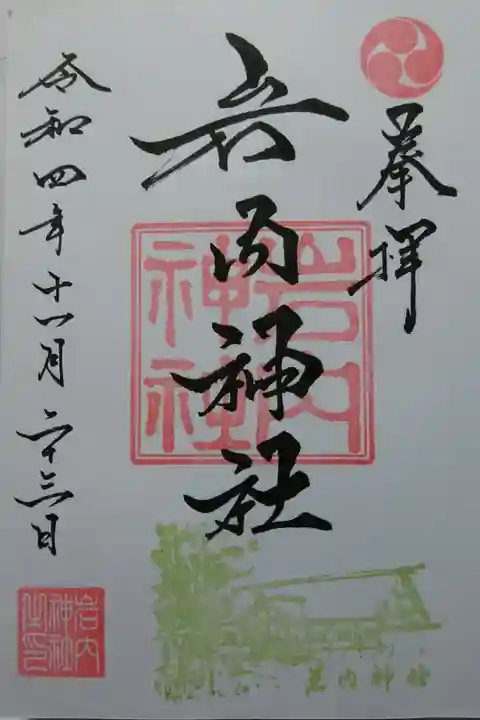 奉拝
岩内神社
岩内神社
令和四年十一月二十三日
岩内神社之印
岩内神社